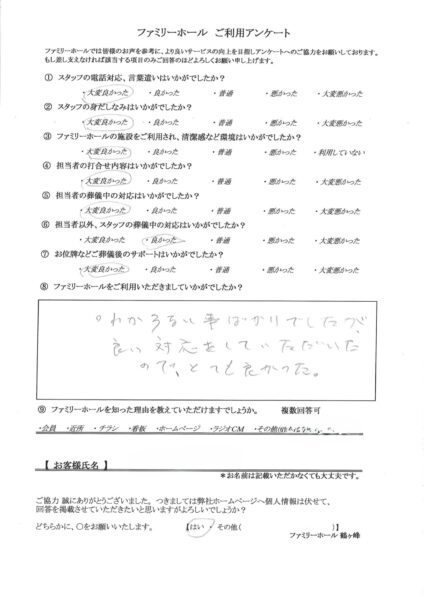 ファミリーホール ご利用アンケート
ファミリーホールでは皆様のお声を参考に、より良いサービスの向上を目指しアンケートへのご協力をお願いしております。
もし差し支えなければ該当する項目のみご回答のほどよろしくお願い申し上げます。
① スタッフの電話対応、言葉遣いはいかがでしたか?
・大変良かった ・良かった ・普通 ・悪かった ・大変悪かった
② スタッフの身だしなみはいかがでしたか?
・大変良かった ・良かった ・普通 ・悪かった ・大変悪かった
③ ファミリーホールの施設をご利用され、清潔感など環境はいかがでしたか?
・大変良かった ・良かった ・普通 ・悪かった ・利用していない
④ 担当者の打合せ内容はいかがでしたか?
・大変良かった ・良かった ・普通 ・悪かった ・大変悪かった
⑤ 担当者の葬儀中の対応はいかがでしたか?
・大変良かった ・良かった ・普通 ・悪かった ・大変悪かった
⑥ 担当者以外、スタッフの葬儀中の対応はいかがでしたか?
・大変良かった ・良かった ・普通 ・悪かった ・大変悪かった
⑦ お位牌などご葬儀後のサポートはいかがでしたか?
・大変良かった ・良かった ・普通 ・悪かった ・大変悪かった
⑧ ファミリーホールをご利用いただきましていかがでしたか?
わからない事ばかりでしたが、
良い対応をしていただいた
ので、とても良かった。
⑨ ファミリーホールを知った理由を教えていただけますでしょうか。 複数回答可
・会員 ・近所 ・チラシ ・看板 ・ホームページ ・ラジオCM ・その他
【 お客様氏名 】
*お名前は記載いただかなくても大丈夫です。
ご協力 誠にありがとうございました。つきましては弊社ホームページへ個人情報は伏せて、
回答を掲載させていただきたいと思いますがよろしいでしょうか?
どちらかに、○をお願いいたします。 【はい ・ その他( )】
ファミリーホール 鶴ヶ峰